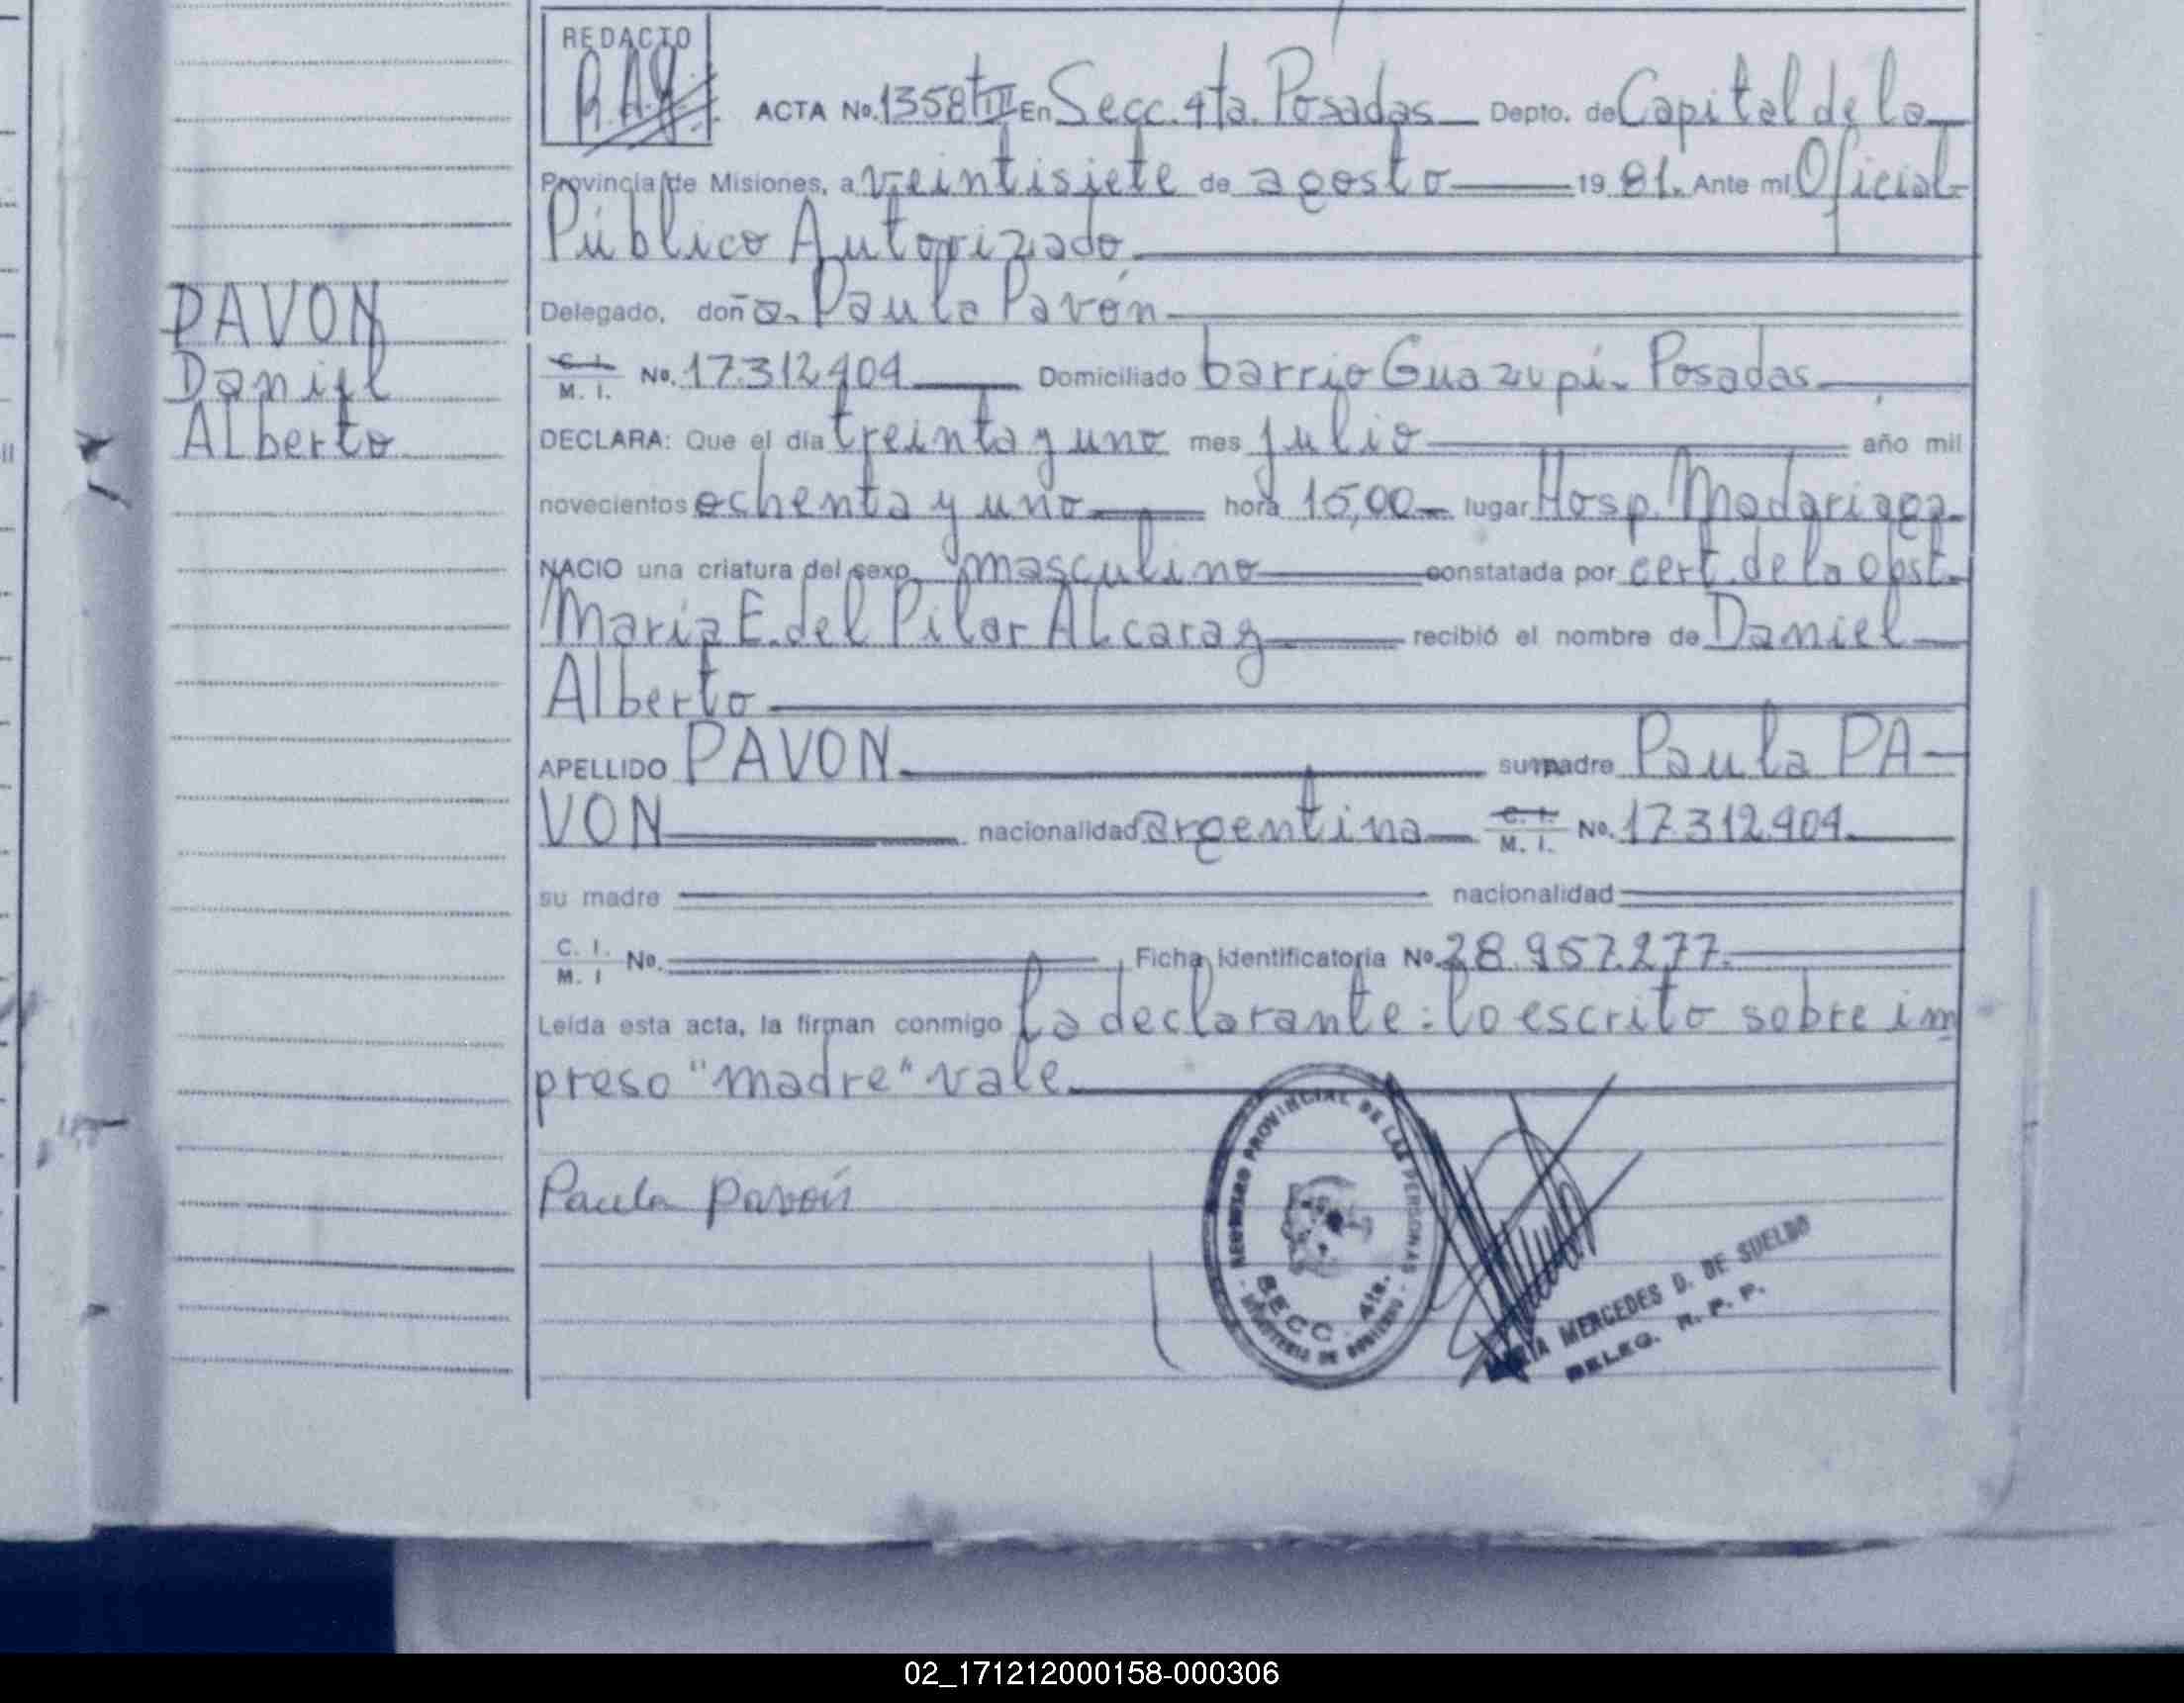 REDACTO
ACTA No. 1358 tIII En Secc. 4ta. Posadas Depto. de Capital de la
Provincia de Misiones, a veintisiete de agosto 19 81. Ante mi Oficial
Público Autorizado
PAVON
Daniel
Alberto
Delegado, doña. Paula Pavón
C. I. M. I. No. 17.312.904 Domiciliado barrio Guazupi. Posadas
DECLARA: Que el día treinta y uno mes julio año mil
novecientos ochenta y uno hora 15,00 lugar Hosp. Madariaga
NACIO una criatura del sexo masculino constatada por cert. de la obst.
María E. del Pilar Alcaraz recibió el nombre de Daniel
Alberto
APELLIDO PAVON su madre Paula PA-
VON nacionalidad argentina C. I. M. I. No. 17.312.904
su madre nacionalidad
C. I. M. I No. Ficha identificatoria No. 28.957.277.
Leída esta acta, la firman conmigo la declarante: lo escrito sobre im
preso "madre" vale
Paula Pavón
REGISTRO PROVINCIAL DE LAS PERSONAS
SECC. 4ta.
MINISTERIO DE GOBIERNO
MARIA MERCEDES G. DE SUELDO
DELEG. R. P. P.
02_171212000158-000306